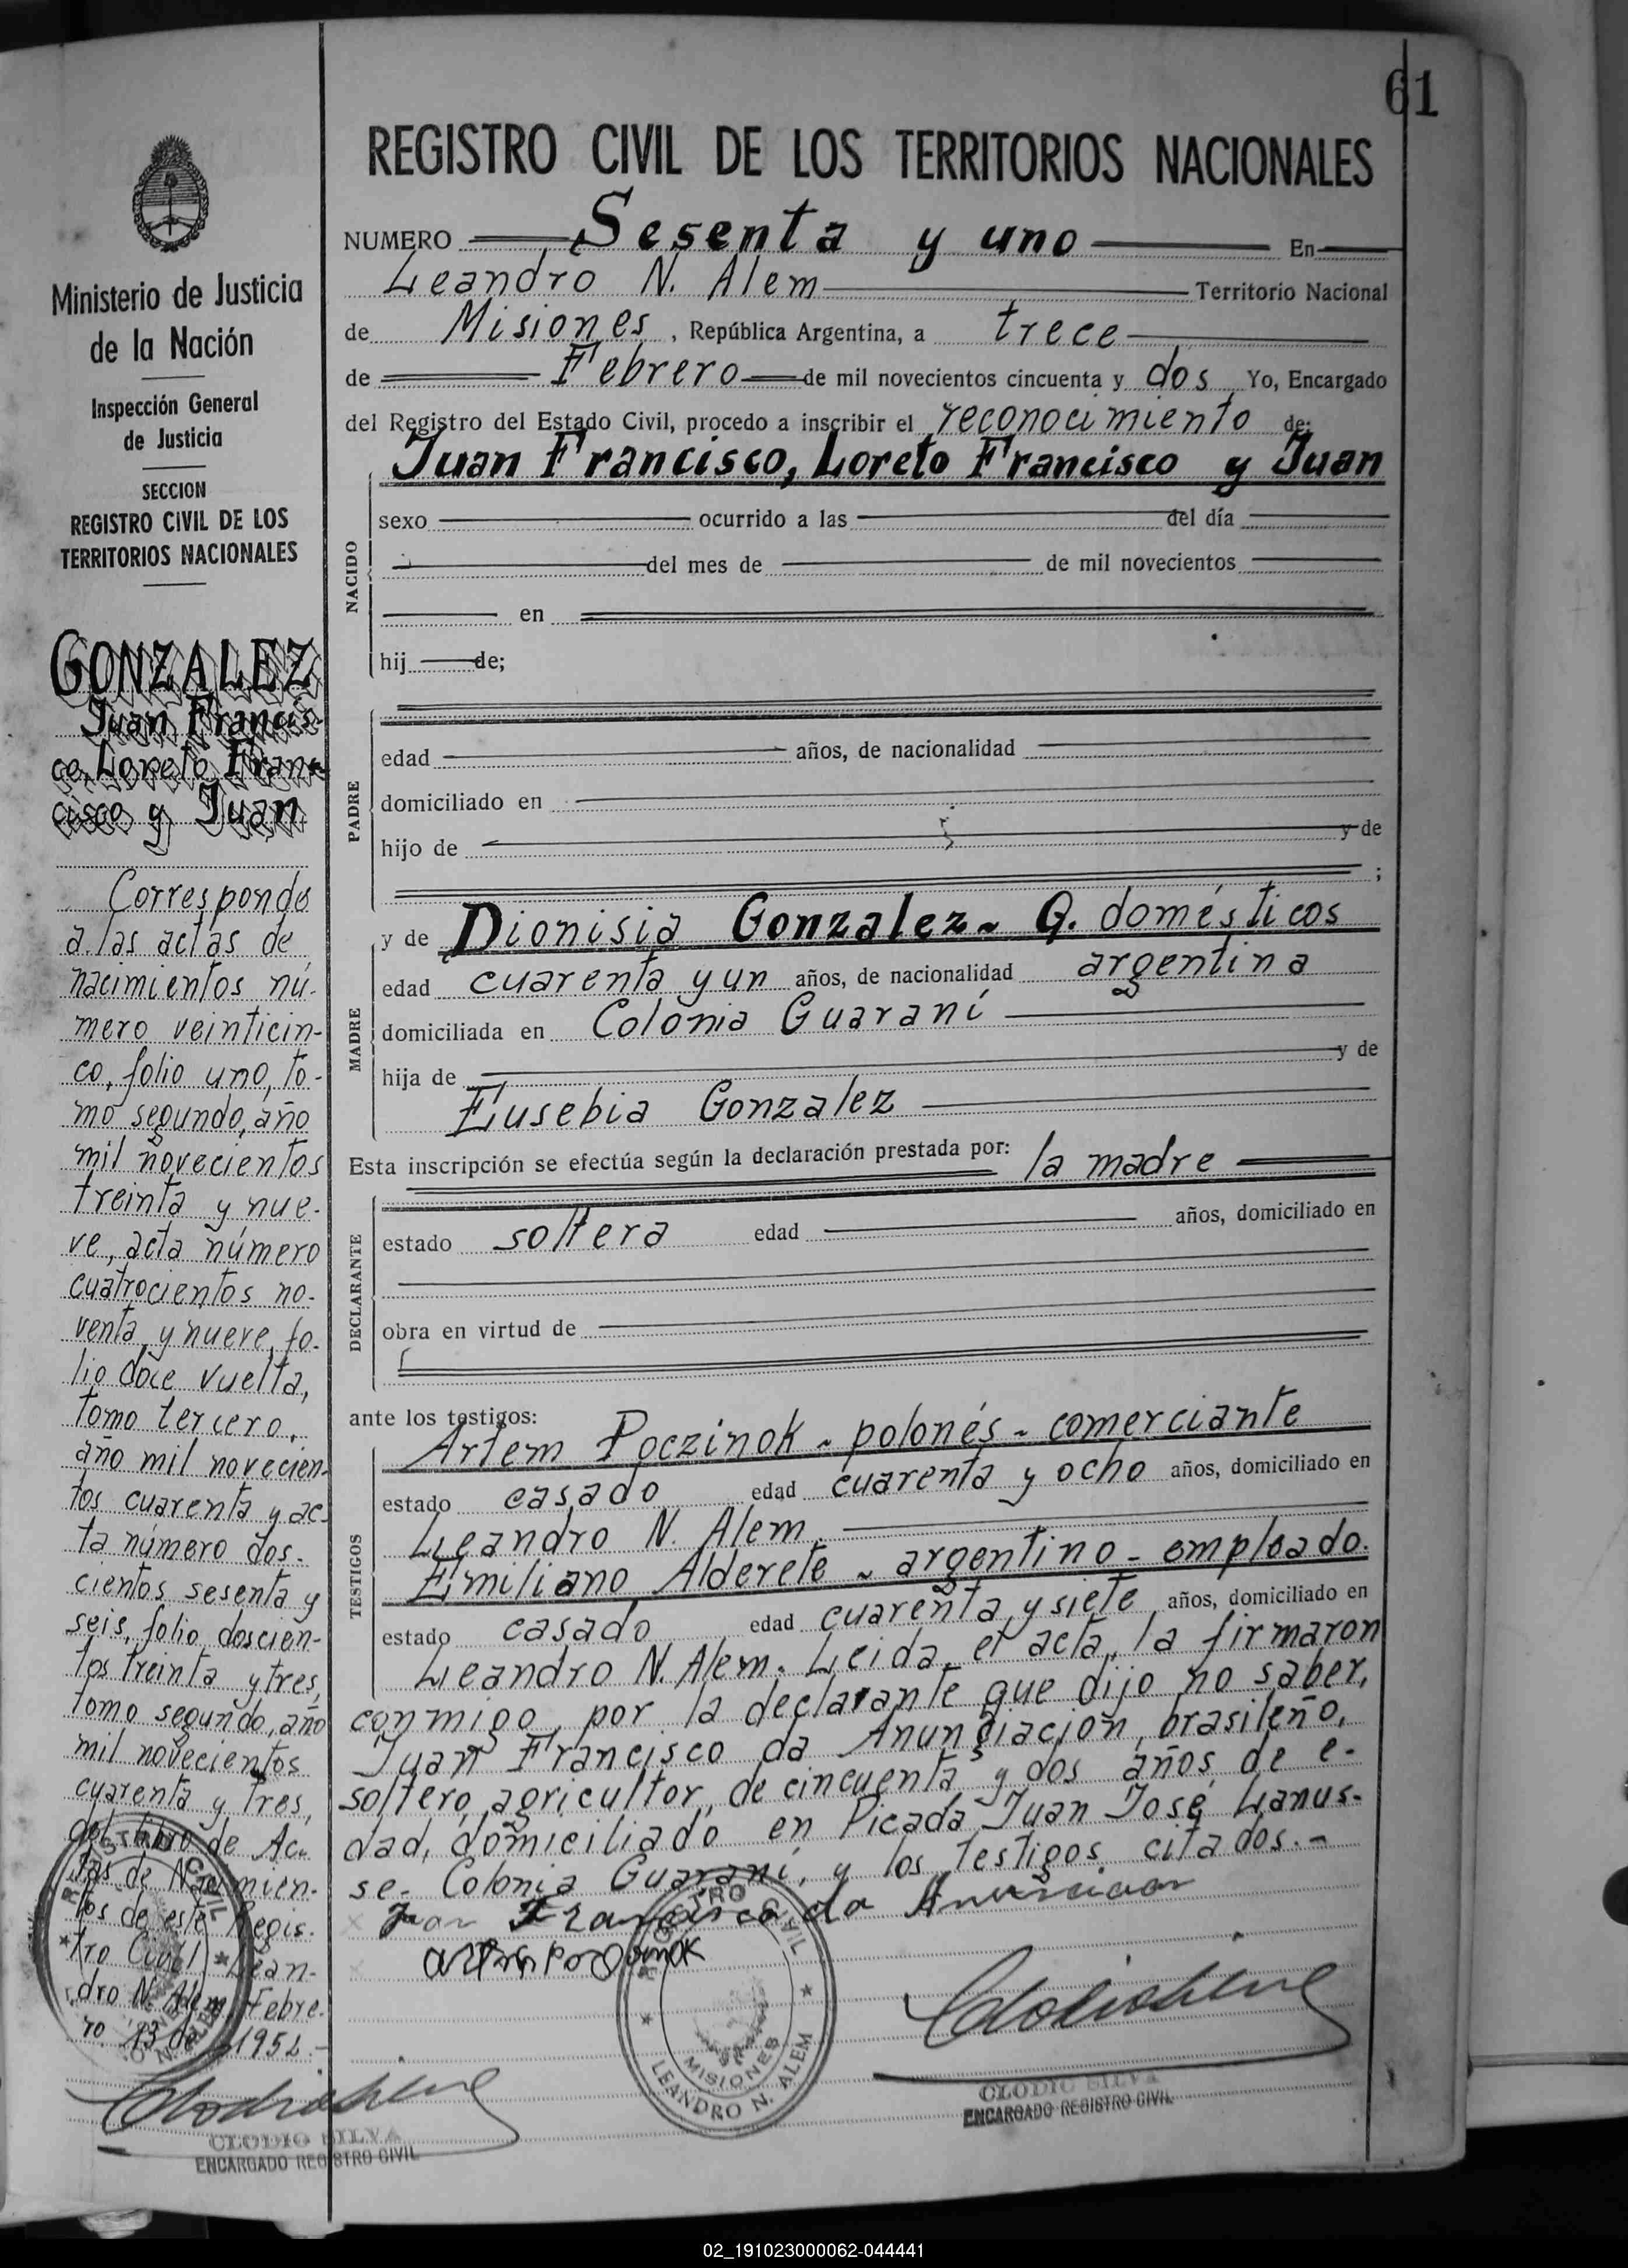 61
REGISTRO CIVIL DE LOS TERRITORIOS NACIONALES
NUMERO Sesenta y uno En
Leandro N. Alem Territorio Nacional
de Misiones, República Argentina, a trece
de Febrero de mil novecientos cincuenta y dos Yo, Encargado
del Registro del Estado Civil, procedo a inscribir el reconocimiento de:
Juan Francisco, Loreto Francisco y Juan
NACIDO
sexo ocurrido a las del día
del mes de de mil novecientos
en
hij de;
PADRE
edad años, de nacionalidad
domiciliado en
hijo de y de
;
MADRE
y de Dionisia Gonzalez - Q. domésticos
edad cuarenta y un años, de nacionalidad argentina
domiciliada en Colonia Guaraní
hija de y de
Eusebia Gonzalez
Esta inscripción se efectúa según la declaración prestada por: la madre
DECLARANTE
estado soltera edad años, domiciliado en
obra en virtud de
ante los testigos:
TESTIGOS
Artem Poczinok - polonés - comerciante
estado casado edad cuarenta y ocho años, domiciliado en
Leandro N. Alem.
Emiliano Alderete - argentino - empleado.
estado casado edad cuarenta y siete años, domiciliado en
Leandro N. Alem. Leida el acta, la firmaron
conmigo, por la declarante que dijo no saber,
Juan Francisco da Anunciación, brasileño,
soltero, agricultor, de cincuenta y dos años de e-
dad, domiciliado en Picada Juan José Lanus-
se - Colonia Guaraní, y los testigos citados.-
Juan Francisco da Anunciacion
REGISTRO CIVIL
MISIONES
LEANDRO N. ALEM
CLODIO SILVA
ENCARGADO REGISTRO CIVIL
Ministerio de Justicia
de la Nación
Inspección General
de Justicia
SECCION
REGISTRO CIVIL DE LOS
TERRITORIOS NACIONALES
GONZALEZ
Juan Francis-
co, Loreto Fran-
cisco y Juan
Corresponde
a las actas de
nacimientos nú-
mero veinticin-
co, folio uno, to-
mo segundo, año
mil novecientos
treinta y nue-
ve, acta número
cuatrocientos no-
venta y nueve, fo-
lio doce vuelta,
tomo tercero,
año mil novecien-
tos cuarenta y ac-
ta número dos-
cientos sesenta y
seis, folio doscien-
tos treinta y tres,
tomo segundo, año
mil novecientos
cuarenta y tres,
del libro de Ac-
tas de Nacimien-
tos de este Regis-
tro Civil Lean-
dro N. Alem, Febre-
ro 13 de 1952.-
CLODIO SILVA
ENCARGADO REGISTRO CIVIL
02_191023000062-044441